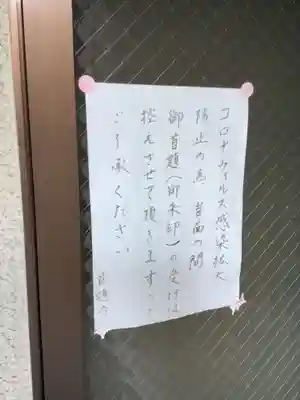 コロナウィルス感染拡大
防止の為 当面の間
御首題(御朱印)の受付は
控えさせて頂きます。
ご了承ください